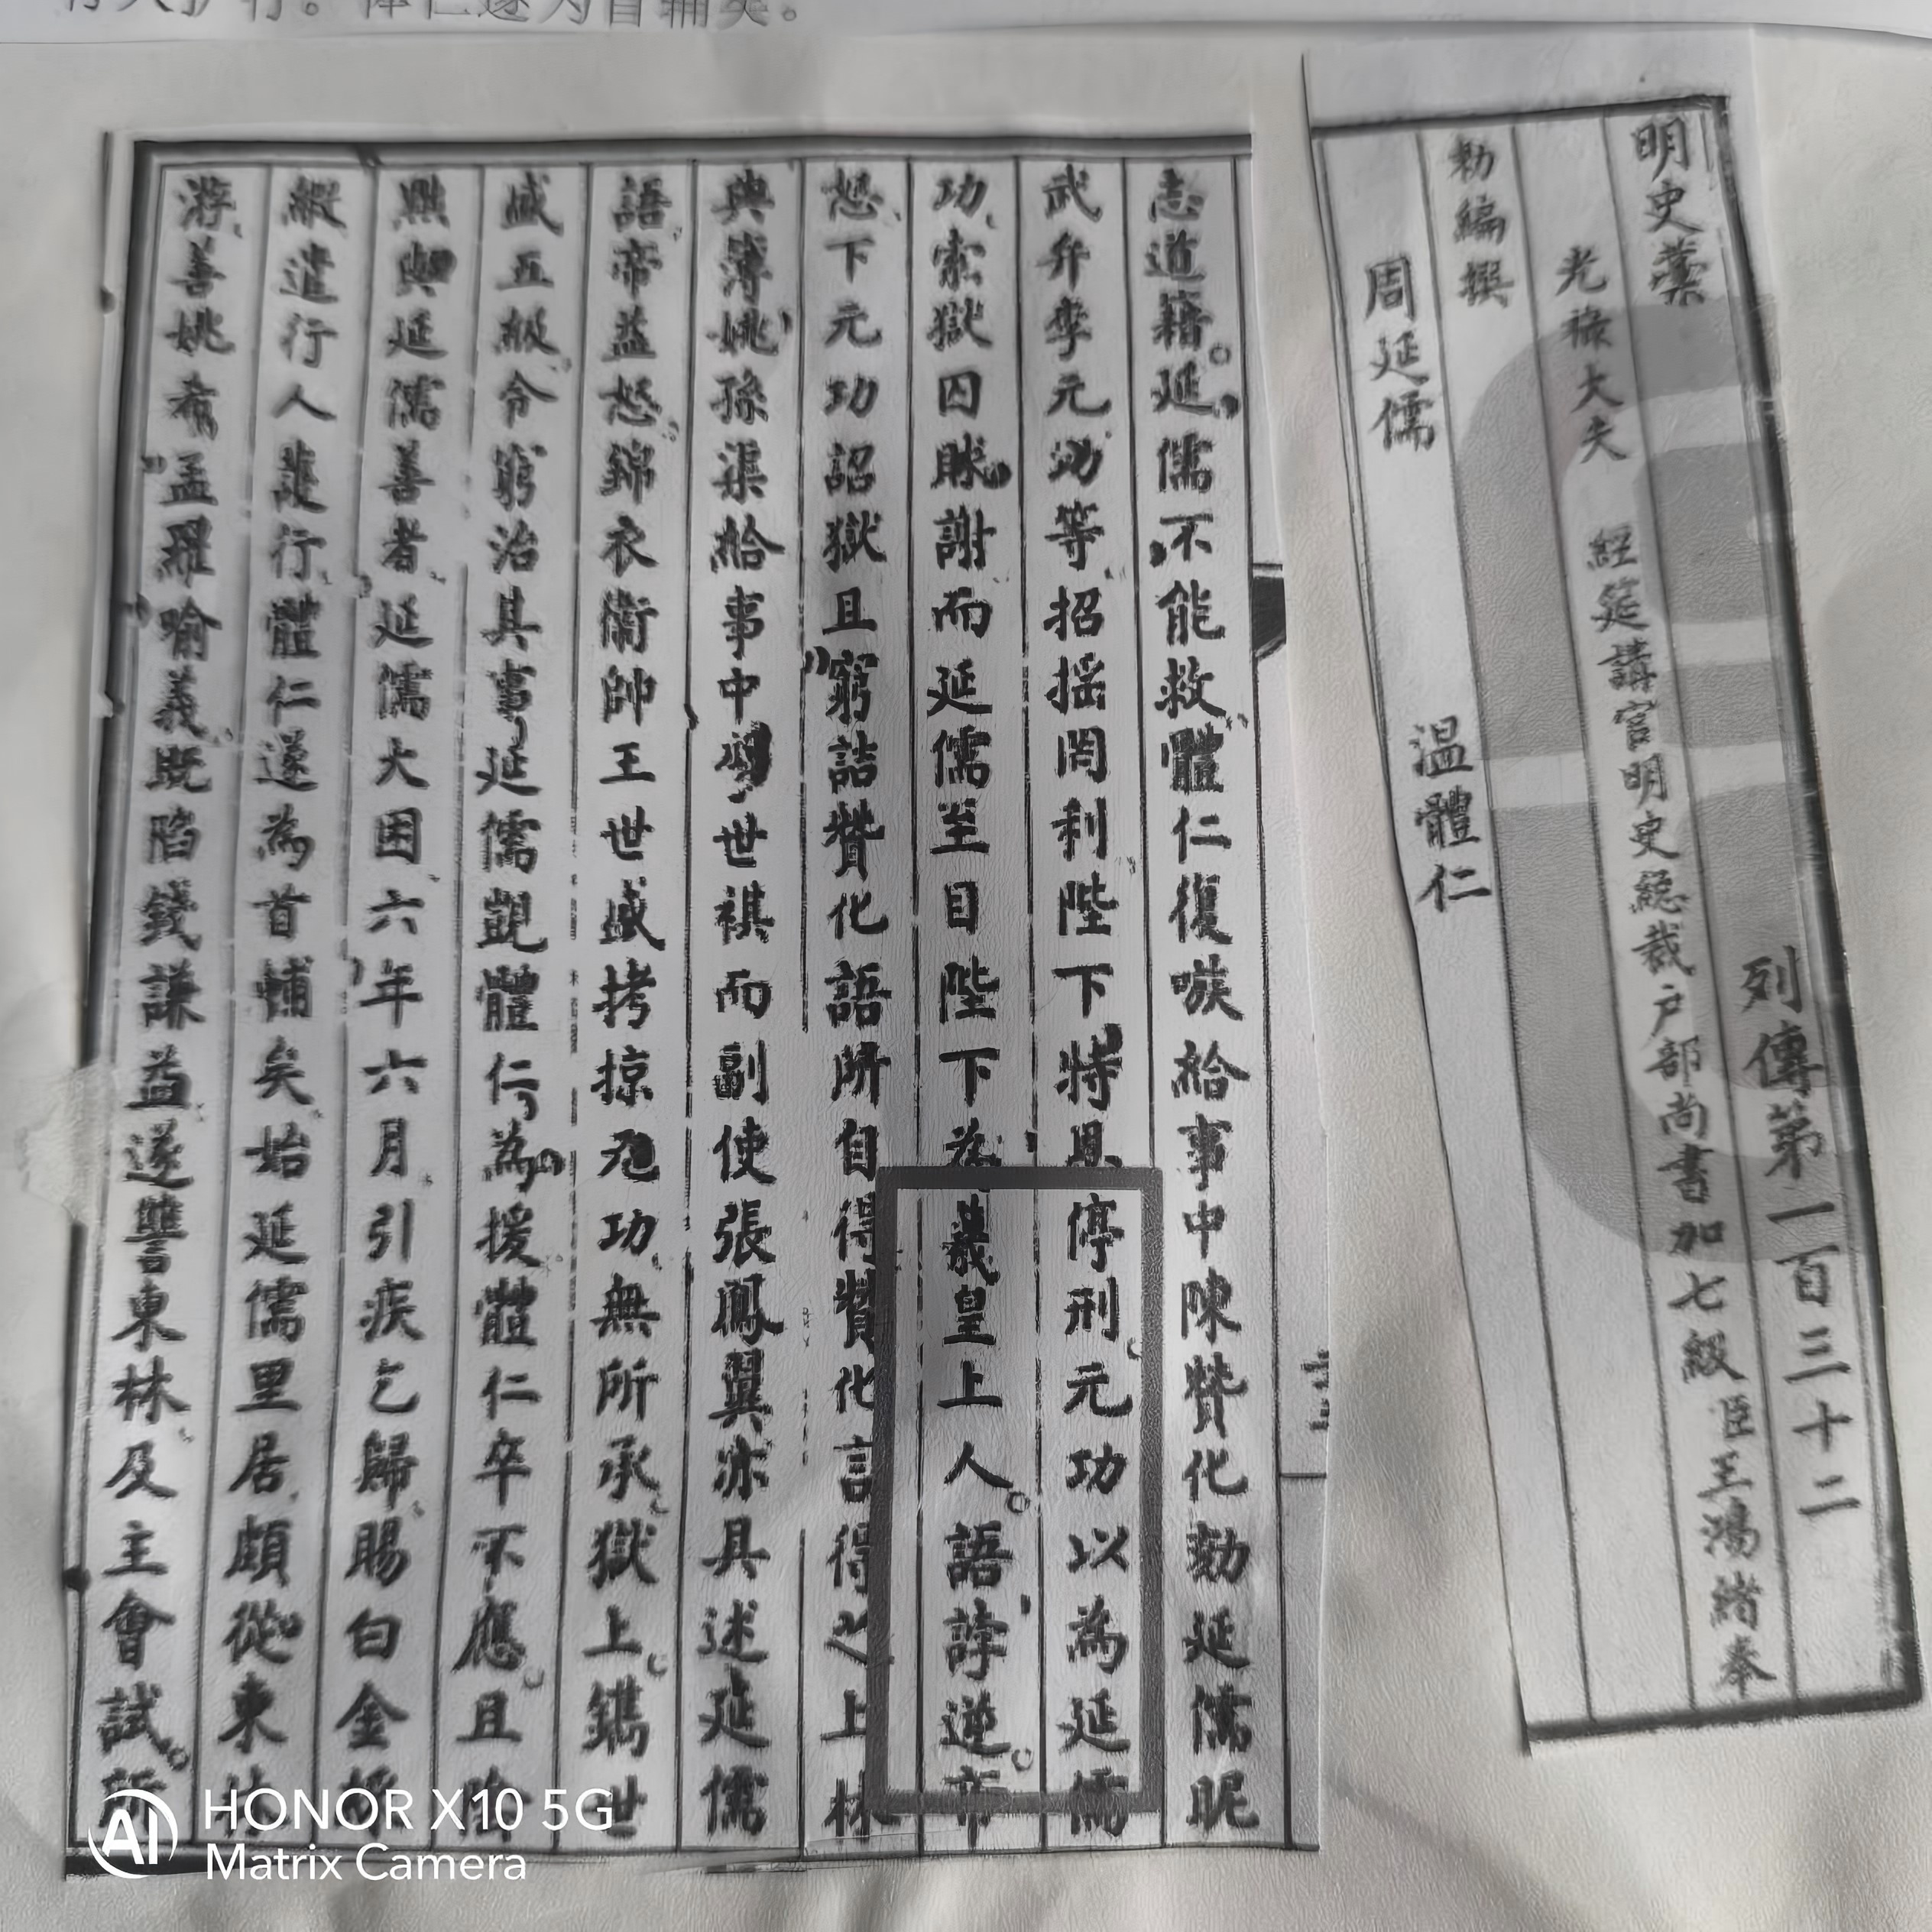 明史藁
列傳第一百三十二
光祿大夫 經筵講官明史總裁户部尚書加七級臣王鴻緒奉
勅編撰
周延儒 温體仁
志道籍延儒不能救體仁復嗾給事中陳贊化劾延儒昵
武弁李元功等招摇罔利陛下特恩停刑元功以為延儒
功索獄囚賕謝而延儒至目陛下為羲皇上人語誖逆帝
怒下元功詔獄且窮詰贊化語所自得贊化言得之上林
典簿姚孫渠給事中李世祺而副使張鳳翼亦具述延儒
語帝益怒錦衣衞帥王世盛拷掠元功無所承獄上鐫世
盛五級令窮治其事延儒覬體仁為援體仁卒不應且陰
黜與延儒善者延儒大困六年六月引疾乞歸賜白金
縀遣行人護行體仁遂為首輔矣始延儒里居頗從東林
游善姚希孟羅喻義既陷錢謙益遂讐東林及主會試所
HONOR X10 5G
Matrix Camera